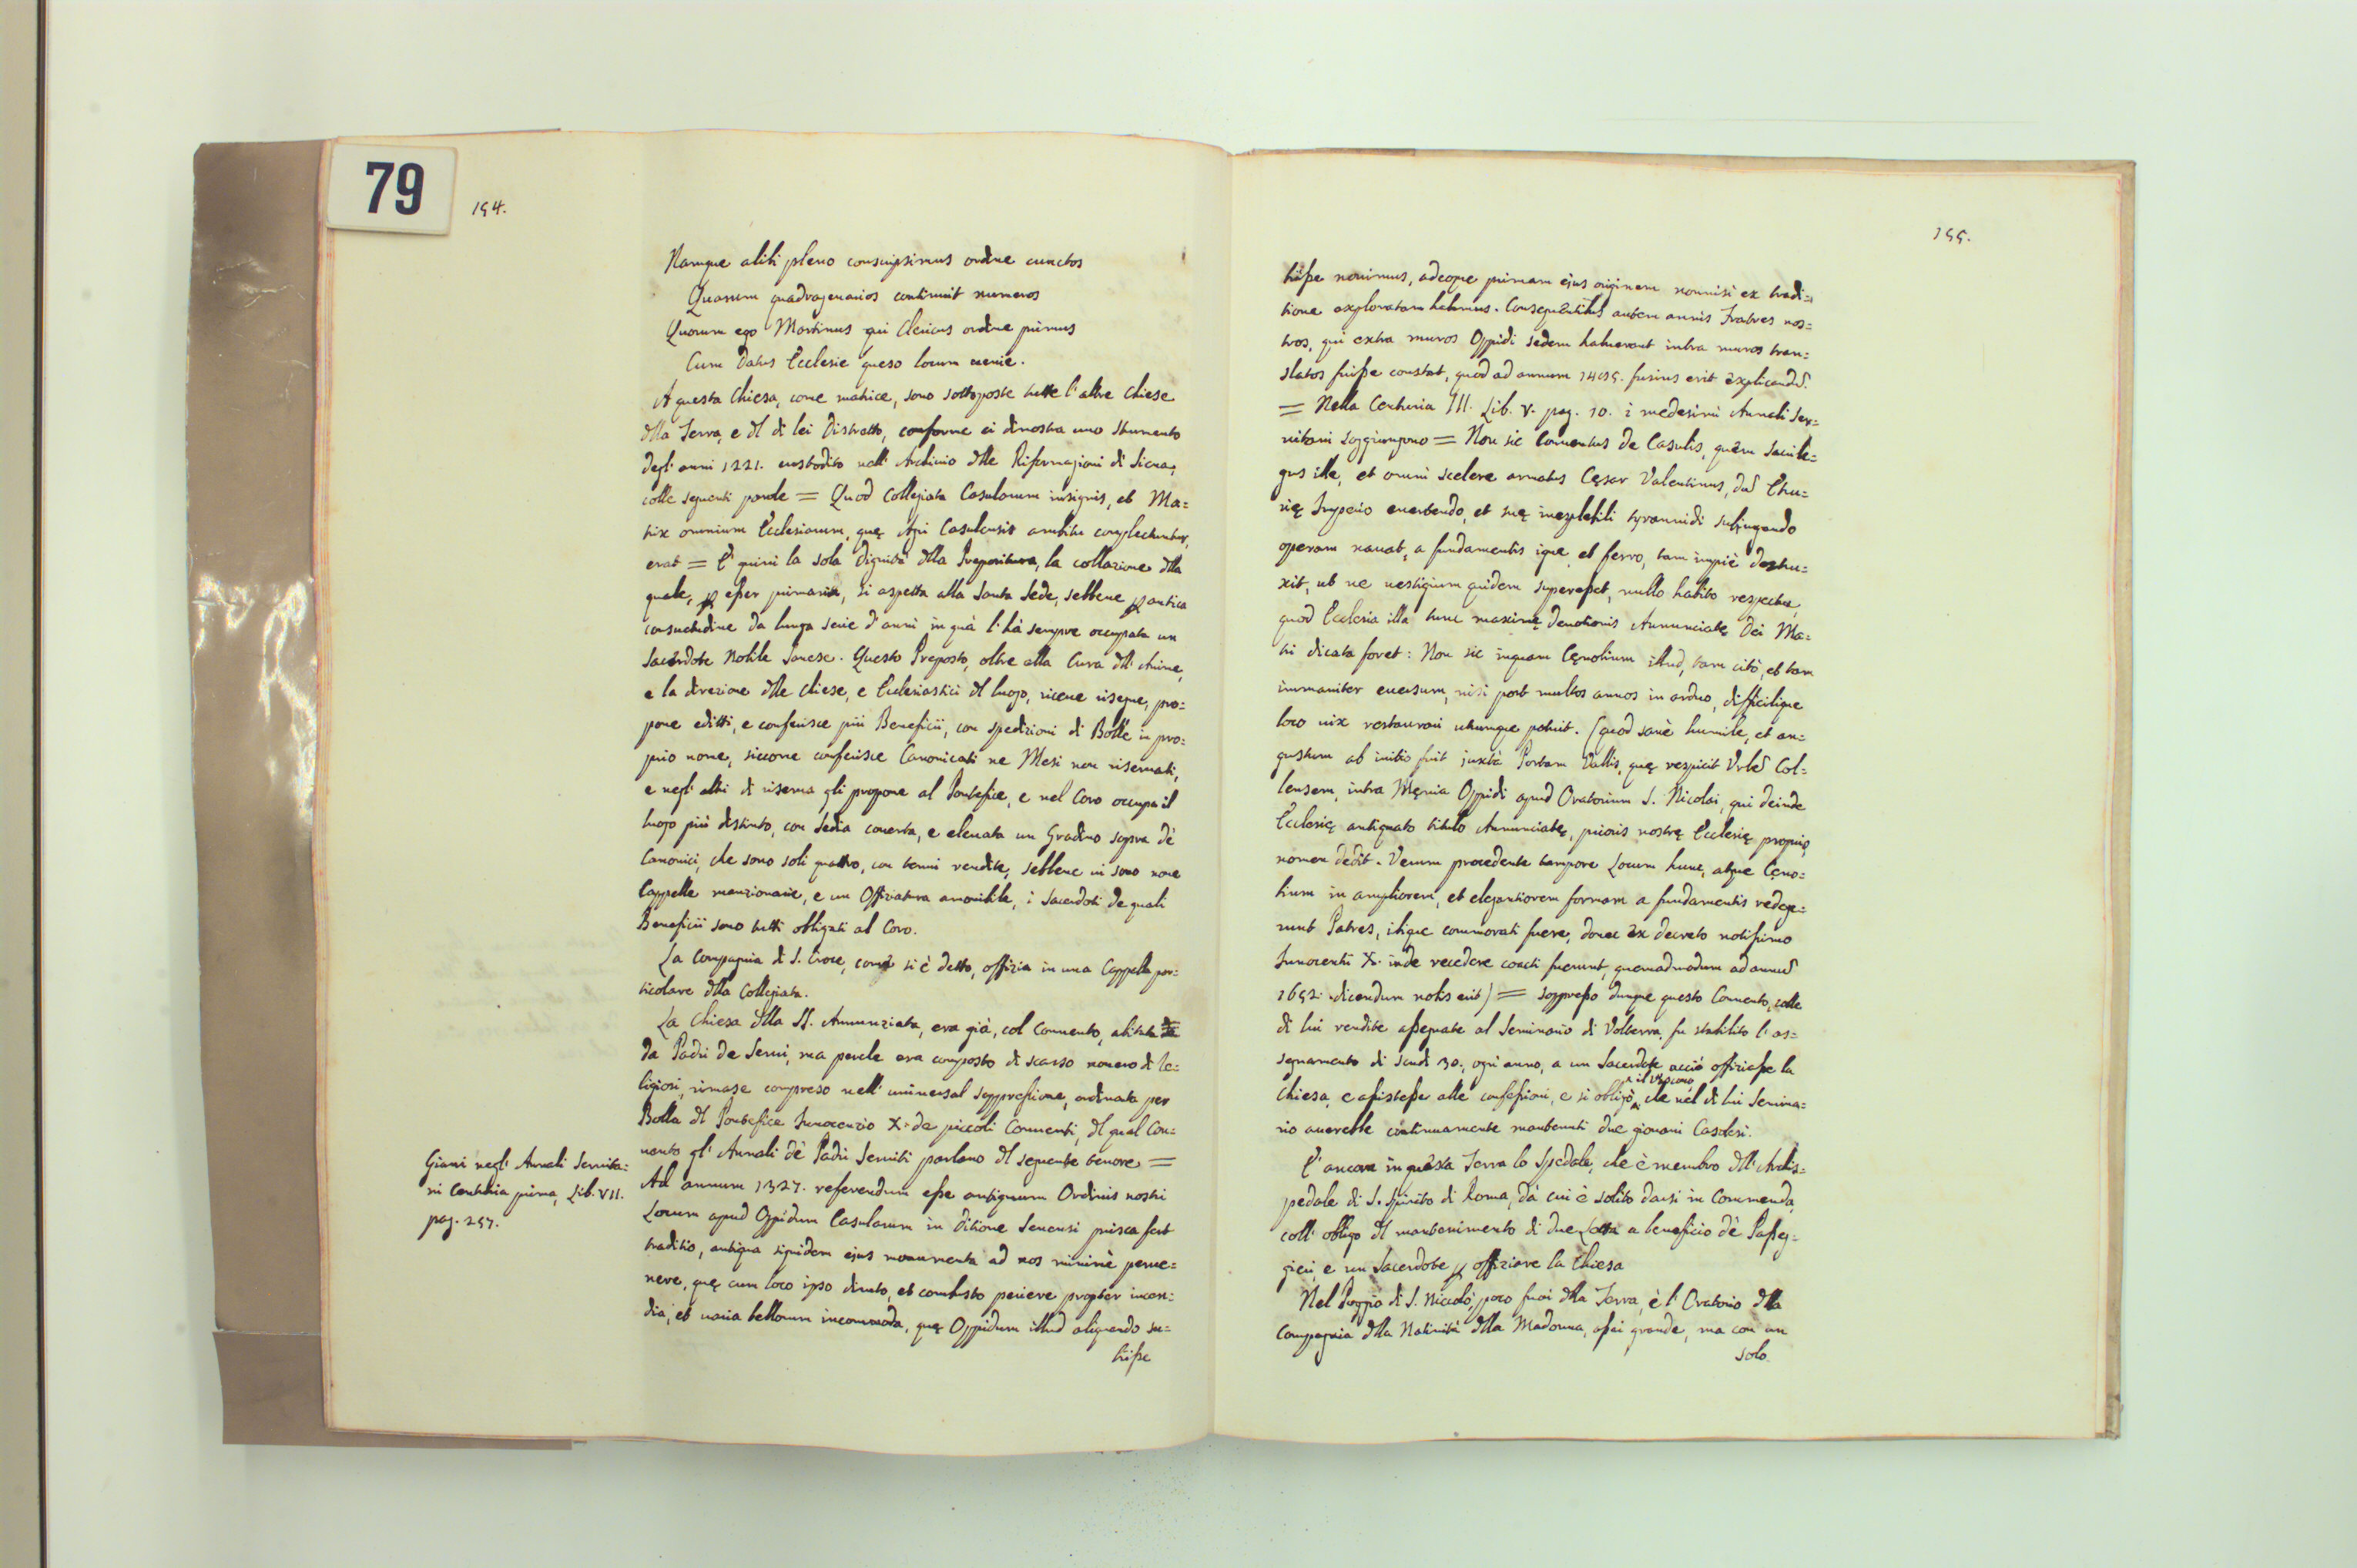 79
154.
Namque alibi pleno conscripsimus ordine cunctos
Quorum quadragenarios continuit numeros
Quorum ego Martinus qui Clericus ordine primus
Cum datus Ecclesie queso locum uenie.
A questa Chiesa, come matrice, sono sottoposte tutte l'altre Chiese
dlla Terra, e dl di lei Distretto, conforme ci dimostra uno Strumento
degl'anni 1221. custodito nell'Archiuio dlle Riformagioni di Siena,
colle seguenti parole = Quod Collegiata Casularum insignis, et Ma=
trix omnium Ecclesiarum, quę Agri Casulensis ambitu complectuntur,
erat = E' quiui la sola Dignità dlla Prepositura, la collazione dlla
quale, p esser primaria, si aspetta alla Santa Sede, sebbene p antica
consuetudine da lunga serie d'anni in quà l'hà sempre occupata un
Sacerdote Nobile Sanese. Questo Preposto, oltre alla Cura dll'Anime,
e la direzione dlle Chiese, e Ecclesiastici dl luogo, riceue risegne, pro=
pone editti, e conferisce più Beneficii, con spedizioni di Bolle in pro=
prio nome, siccome conferisce Canonicati ne Mesi non riseruati,
e negl'altri di riserua gli propone al Pontefice, e nel Coro occupa il
luogo più distinto, con Sedia couerta, e eleuata un Gradino sopra dè
Canonici, che sono soli quattro, con tenui rendite, sebbene ui sono noue
Cappelle manzionarie, e un Offiziatura amouibile, i Sacerdoti de quali
Beneficii sono tutti obligati al Coro.
La Compagnia di S. Croce, come si è detto, offizia in una Cappella par=
ticolare dlla Collegiata.
La Chiesa dlla SS. Annunziata, era già, col Conuento, abitata
da Padri de Serui, ma perche era composto di scarso nouero di Re=
ligiosi, rimase compreso nell'uniuersal soppressione, ordinata per
Bolla dl Pontefice Innocenzio X. de piccoli Conuenti, dl qual Con=
uento gl'Annali dè Padri Seruiti parlano dl seguente tenore =
Ad annum 1327. referendum esse antiquum Ordinis nostri
Locum apud Oppidum Casularum in ditione Senensi prisca fert
traditio, antiqua siquidem ejus monumenta ad nos minimè perue=
nere, quę cum loco ipso diruto, et combusto periere propter incen=
dia, et uaria bellorum incommoda, quę Oppidum illud aliquando su=
biisse
Giani negl'Annali Seruita=
ni Centuria prima, Lib. VII.
pag. 257.
155.
biisse nouimus, adeoque primam ejus originem nonnisi ex tradi=
tione exploratam habemus. Consequentibus autem annis Fratres nos=
tros, qui extra muros Oppidi sedem habuerant intra muros tran=
slatos fuisse constat, quod ad annum 1405. fusius erit explicandũ.
= Nella Centuria III. Lib. V. pag. 10. i medesimi Annali Ser=
uitani soggiungono = Non sic Conuentus de Casulis, quem sacrile=
gus ille, et omni scelere armatus Cęsar Valentinus, dũ Etru=
rię Imperio euertendo, et suę inexplebili tyrannidi subjugando
operam nauat, a fundamentis igne, et ferro, tam impiè destru=
xit, ut ne uestigium quidem superesset, nullo habito respectu,
quod Ecclesia illa tunc maximę deuotionis Annunciatę Dei Ma=
tri dicata foret: Non sic inquam Cęnobium illud, tam citò, et tam
immaniter euersum, nisi post multos annos in arduo, difficilique
loco uix restaurari utcumque potuit. (quod sanè humile, et an=
gustum ab initio fuit juxtà Portam Vallis, quę respicit Urbẽ Col=
lensem, intra Męnia Oppidi apud Oratorium S. Nicolai, qui deinde
Ecclesię antiquato titulo Annunciatę, prioris nostrę Ecclesię proprio
nomen dedit. Verum procedente tempore Locum hunc, atque Cęno=
bium in ampliorem, et elegantiorem formam a fundamentis redege=
runt Patres, ibique commorati fuere, donec ex decreto notissimo
Innocentii X. inde recedere coacti fuerunt, quemadmodum ad annũ
1652. dicendum nobis erit) = soppresso dunque questo Conuento, colle
di lui rendite assegnate al Seminario di Volterra, fu stabilito l'as=
segnamento di scudi 30., ogni anno, a un Sacerdote acciò offiziasse la
Chiesa, e assistesse alle confessioni, e si obligò il Vescouo, che nel di lui Semina=
rio auerebbe continuamente mantenuti due giouani Casolesi.
E' ancora in questa Terra lo Spedale, che è membro dll'Archis=
pedale di S. Spirito di Roma, dà cui è solito darsi in Commenda,
coll'obligo dl mantenimento di due Letta a beneficio dè Passeg=
gieri, e un Sacerdote p offiziare la Chiesa
Nel Poggio di S. Niccolò, poco fuori dlla Terra, è l'Oratorio dlla
Compagnia dlla Natiuità dlla Madonna, assai grande, ma con un
solo